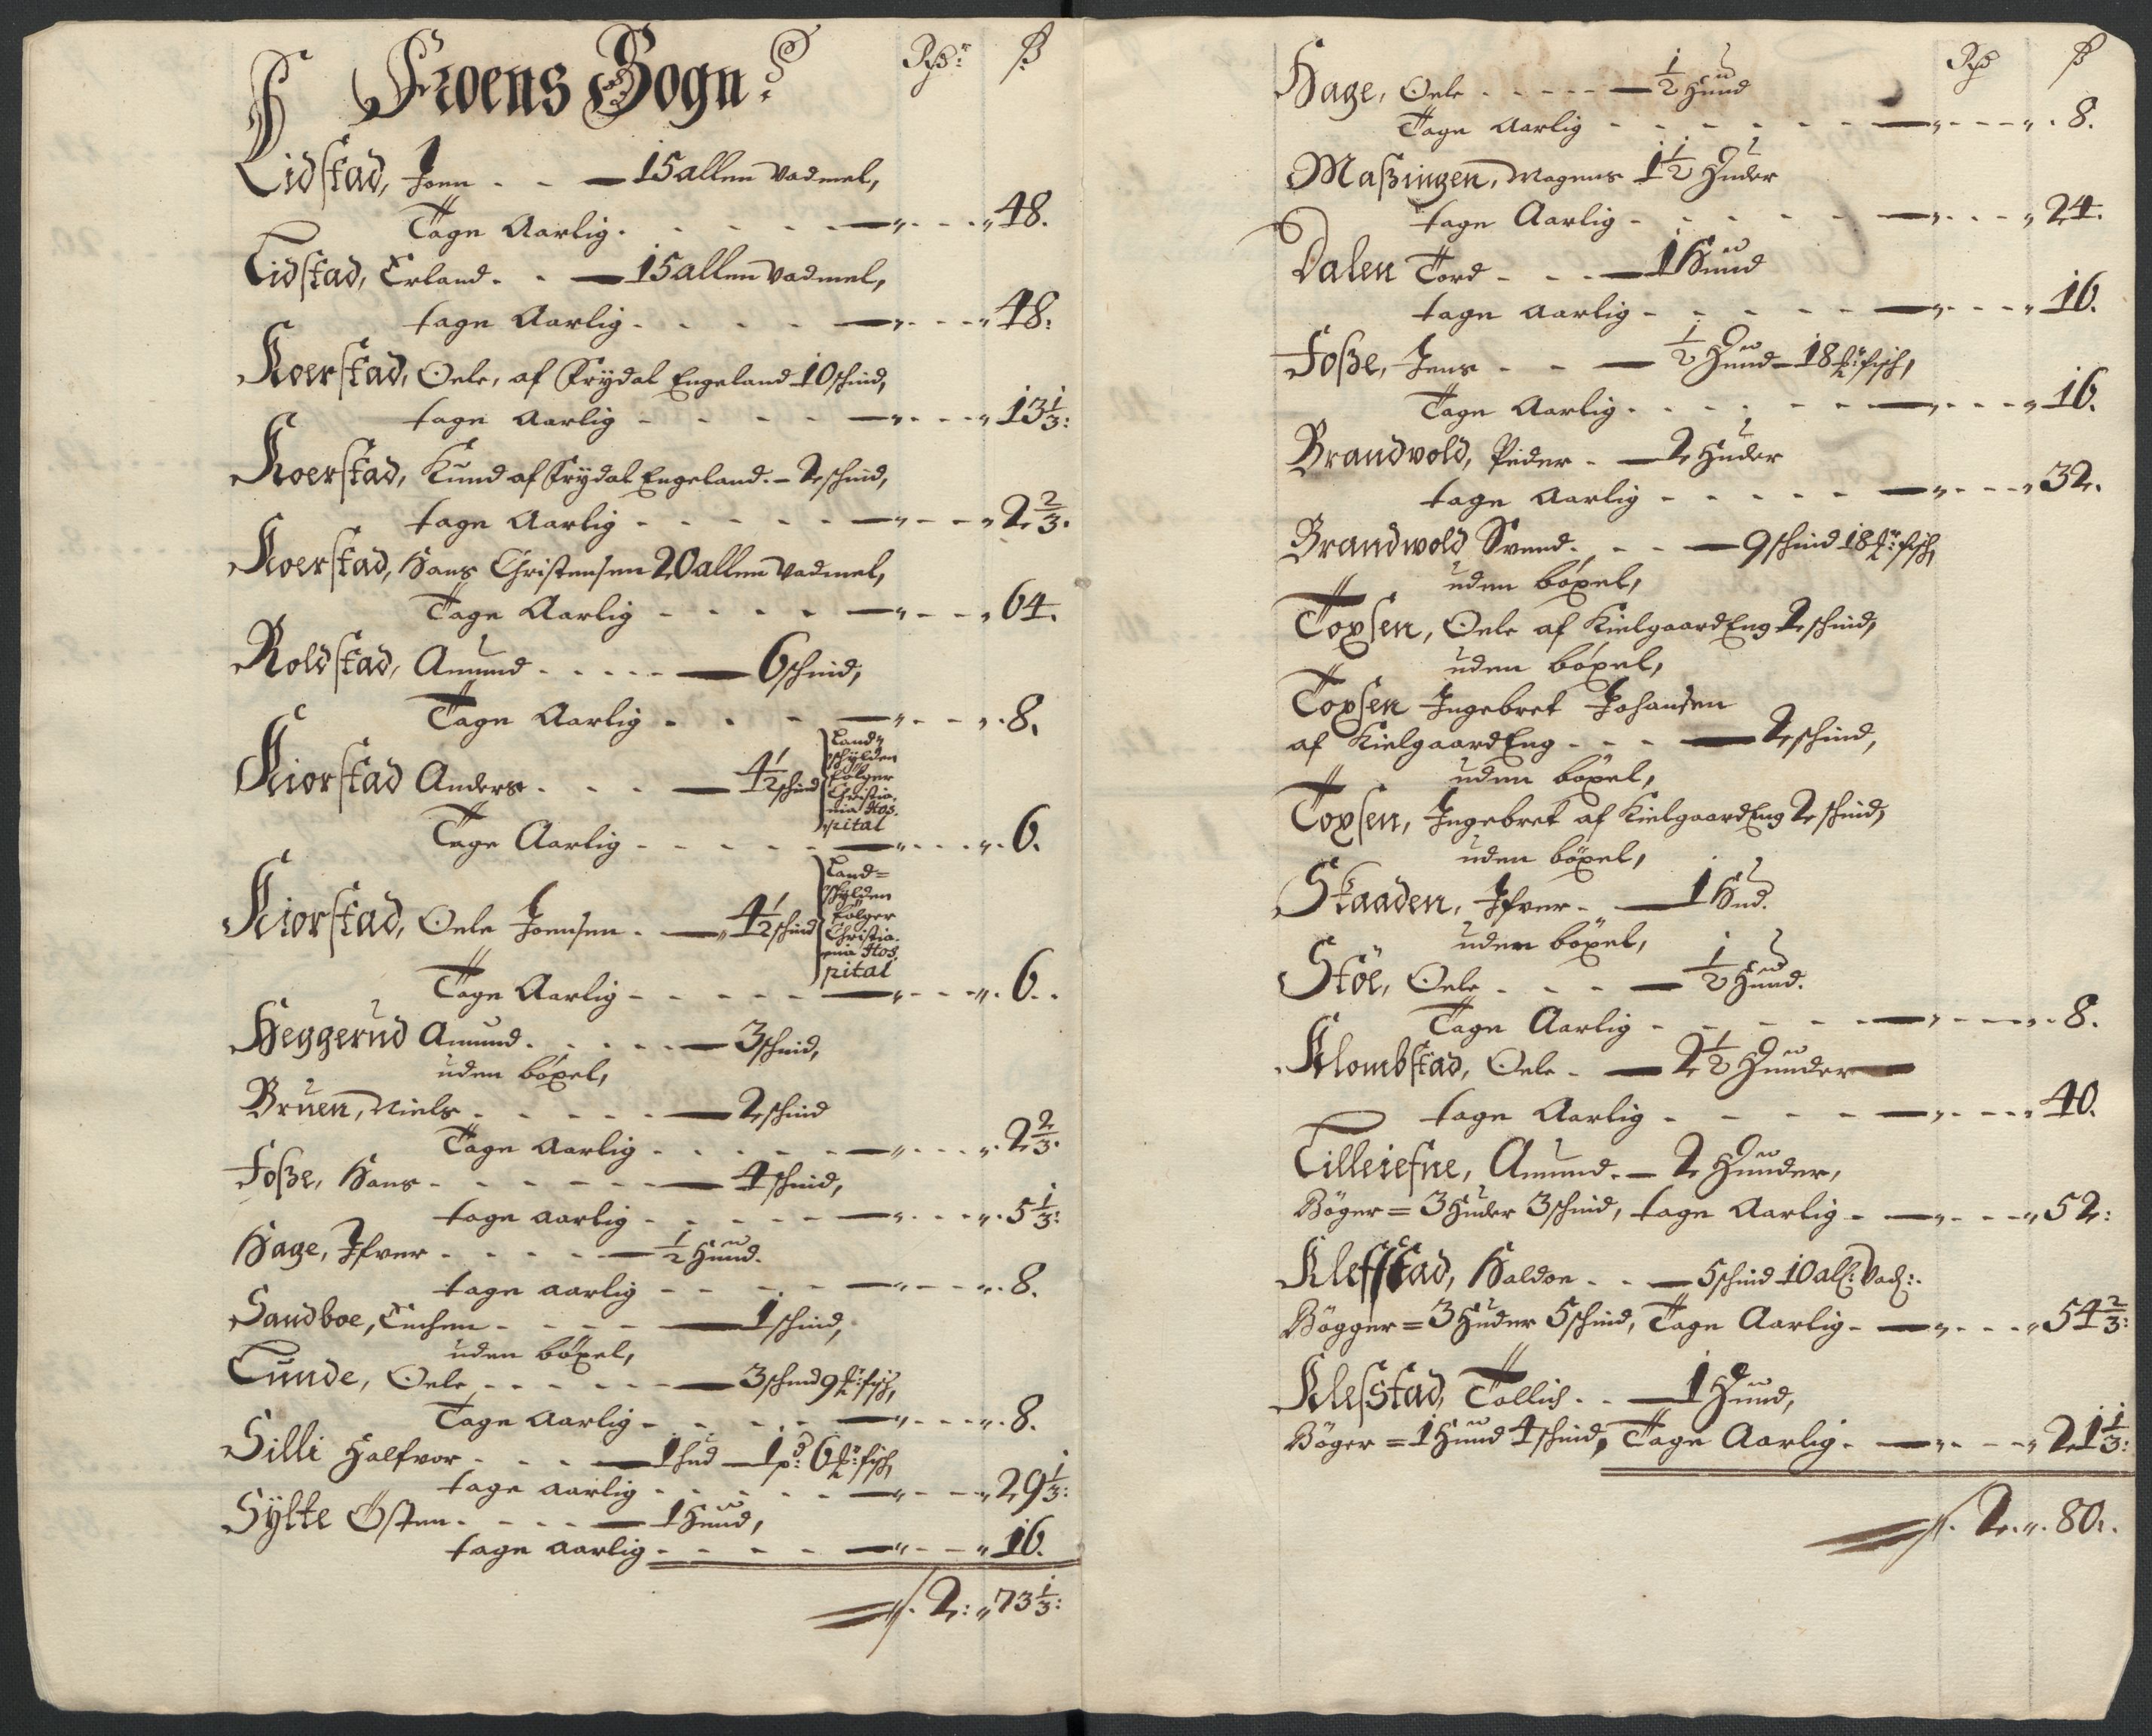 Froens Sogn
Rdr: ß
Lidstad, Joen - - 15 allen vadmel,
Tage Aarlig - - - 48.
Lidstad, Erland - - 15 allen vadmel,
tage Aarlig - - - 48:
Koerstad, Oele, af Frydal Engeland 10 schind,
tage Aarlig - - - 13 1/3:
Koerstad, Knud af Frydal Engeland - 2 schind,
tage Aarlig - - - 2 2/3.
Koerstad, Hans Christensen 20 allen vadmel,
Tage Aarlig - - - 64.
Roldstad, Amund - - - 6 schind,
Tage Aarlig - - - 8.
Kiorstad Anders - - - 4 1/2 schind
Land=
schylden
følger
Christia-
nia Hos-
pital
Tage Aarlig - - - 6.
Kiorstad, Oele Joensen - 4 1/2 schind
Land=
schylden
følger
Christia-
nia Hos-
pital
Tage Aarlig - - - 6.
Heggerud Amund - - - 3 schind,
uden böxel,
Bruen, Niels - - - 2 schind
Tage Aarlig - - - 2 2/3.
Foße, Hans - - - 4 schind,
tage aarlig - - - 5 1/3:
Hage, Ifver - - - 1/2 Huud.
tage aarlig - - - 8.
Sandboe, - - - 1 schind,
uden böxel,
Lunde, Oele - - - 3 schind 9 fisch,
Tage Aarlig - - - 8.
Silli Halfvor - - - 1 hud 1 p: 6 fisch,
tage aarlig - - - 29 1/3:
Sylte Østen - - - 1 Huud,
tage aarlig - - - 16.
2: 73 1/3:
Rdr ß
Hage, Oele - - - 1/2 Huud
Tage aarlig - - - 8.
Maßingen, Mogens 1 1/2 Huder
tage Aarlig - - - 24.
Dalen Tord - - - 1 Huud
tage aarlig - - - 16.
Foße, Jens - - - 1/2 Huud - 18 fisch,
Tage Aarlig - - - 16.
Brandvold, Peder - 2 Huder
tage aarlig - - - 32.
Brandwold Svend - - - 9 schind 18 fisch,
uden böxel,
Toxsen, Oele af Kielgaard Eng 2 schind,
uden böxel,
Toxsen Ingebret Johansen
af Kielgaard Eng - - - 2 schind,
uden böxel,
Toxsen, Ingebret af Kielgaard Eng 2 schind,
uden böxel,
Skaaden, Ifver - - 1 Hud.
uden böxel,
Stöe, Oele - - - 1/2 Huud.
Tage Aarlig - - - 8.
Klombstad, Oele - 2 1/2 Huuder
tage Aarlig - - - 40.
Lilleiefne, Amund - 2 Huuder,
Böger = 3 Huder 3 schind, tage Aarlig - - - 52:
Klefstad, Haldor - - 5 schind 10 all: Vad:
Bögger = 3 Huder 5 schind, Tage Aarlig - - - 54 2/3:
Klefstad, - - 1 Huud,
Böger = 1 Huud 4 schind, Tage Aarlig - - - 21 1/3:
2. 80.